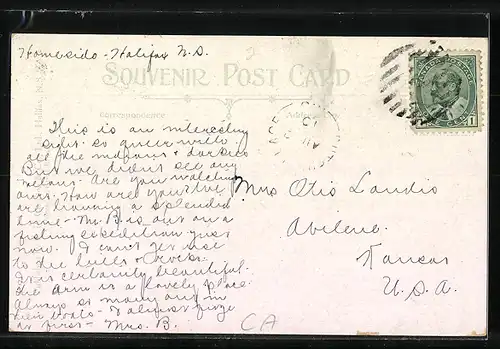 Homeside - Halifax N.S.
SOUVENIR POST CARD
Correspondence
Address
CANADA POSTAGE
1
This is an interesting
city. so queer with
all the indians & darkies
But we didn't see any
melons. Are you watching
ours. How are you? We
are having a splendid
time - Mr. B is out on a
fishing expedition just
now. I can't get use
to the hills & rocks.
It is certainly beautiful.
the Arm is a lovely place.
Always so many out in
their boats -
as first - Mrs. B.
Mrs Otis Landis
Abilene
Kansas
U.S.A.
CA